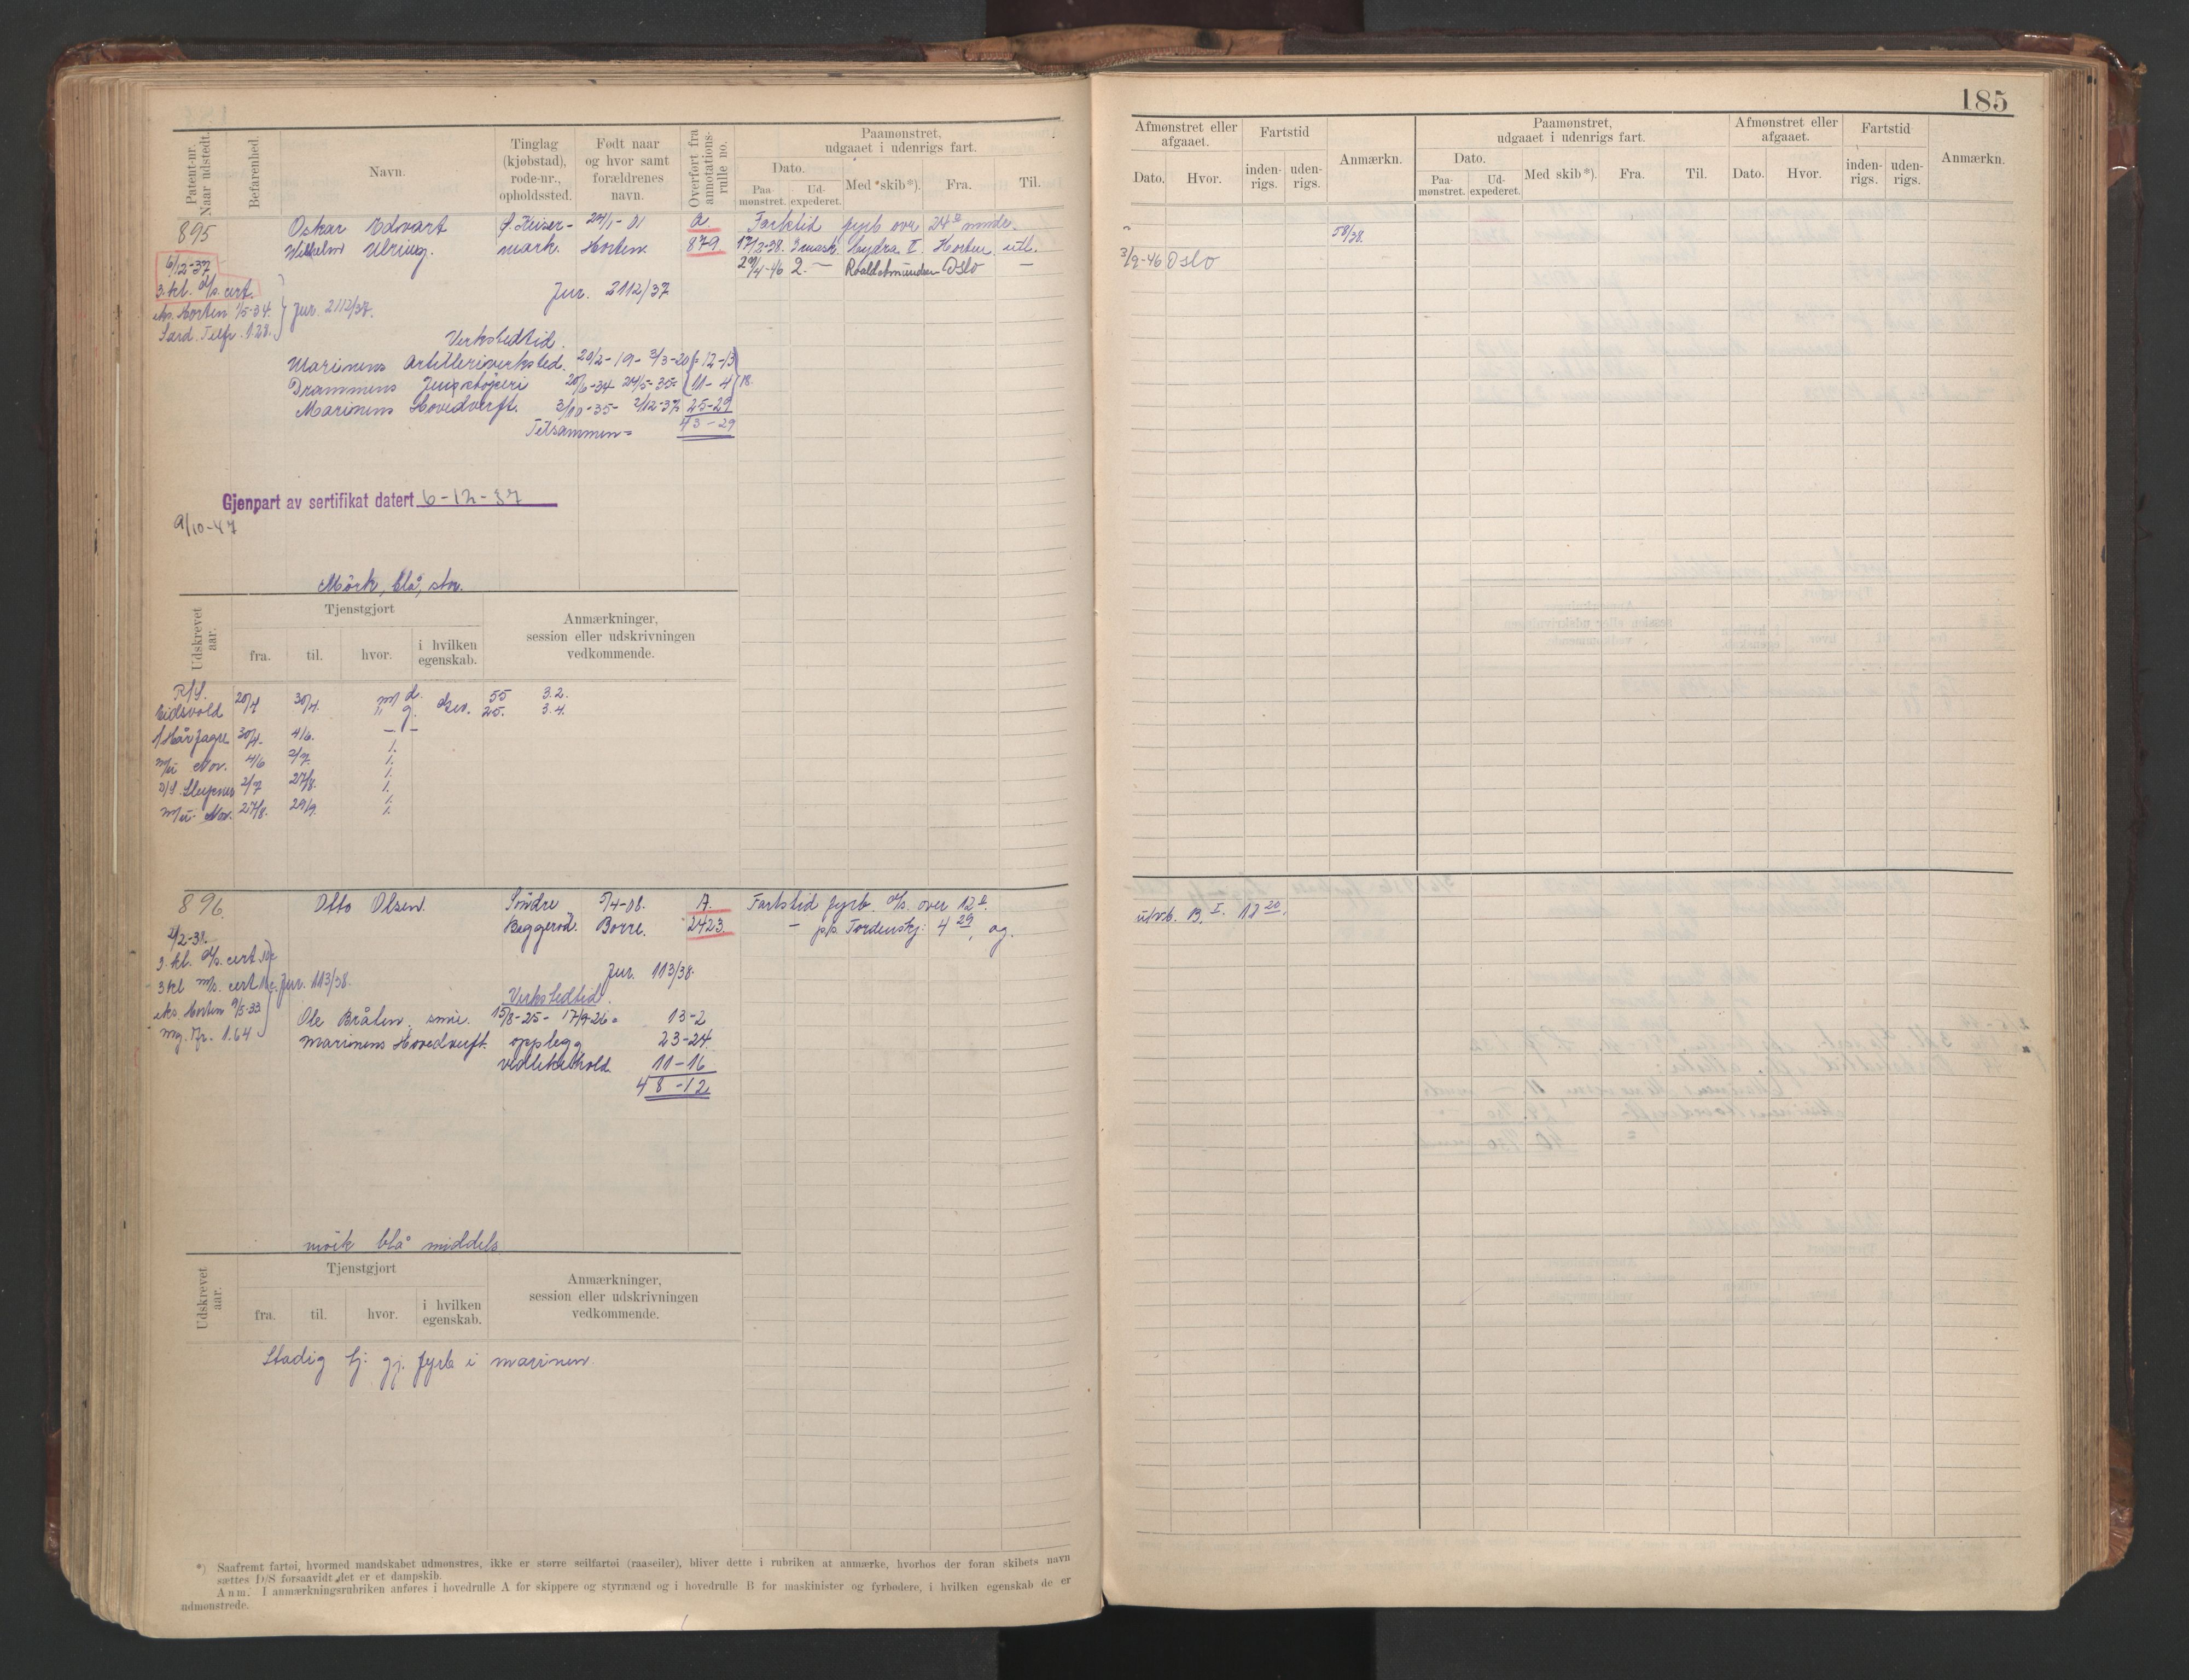 185
Patent-nr. Naar udstedt.
Befarenhed.
Navn.
Tinglag (kjøbstad), rode-nr., opholdssted.
Født naar og hvor samt forældrenes navn.
Overført fra annotations-rulle no.
Paamønstret, udgaaet i udenrigs fart.
Dato.
Paa-mønstret.
Ud-expederet.
Med skib*).
Fra.
Til.
Afmønstret eller afgaaet.
Dato.
Hvor.
Fartstid
inden-rigs.
uden-rigs.
Anmærkn.
Paamønstret, udgaaet i udenrigs fart.
Dato.
Paa-mønstret.
Ud-expederet.
Med skib*).
Fra.
Til.
Afmønstret eller afgaaet.
Dato.
Hvor.
Fartstid
inden-rigs.
uden-rigs.
Anmærkn.
895 Oskar Edvart
Wilhelm Ulring.
mark. Horten.
A.
879
Fartstid fyrb. over 24
17/12-38. 3 mask. Hydra II. Horten utl.
58/38.
2. — Roald Amundsen Oslo —
3/9-46 Oslo
6/12-37
3. kl. d/s. cert.
eks. Horten 1/5-34.
Særd. Telfr. 1.28.
Jur. 2112/37.
Jur. 2112/37
Verkstedtid.
Marinens Artilleriverksted. 20/2-19 - 3/3-20 = 12-13
Drammens 20/6-34 24/5-35 = 11-4
Marinens Hovedverft. 3/10-35 - 2/12-37 25-29
Tilsammen = 43-29
Gjenpart av sertifikat datert 6-12-37
9/10-47
Mörk, blå, stor.
Udskrevet aar.
Tjenstgjort
fra.
til.
hvor.
i hvilken egenskab.
Anmærkninger, session eller udskrivningen vedkommende.
P/S.
Eidsvold 20/4 30/4. 55 3.2.
25. 3.4.
Hårfagre 30/4. 4/6. —
Nov. 4/6 2/7.
Sleipner 2/7 27/8.
Nov. 27/8. 29/9.
896. Otto Olsen. Söndre 5/4-08. A. Fartstid fyrb. d/s. over 12
Baggerød. Borre. 2423. — p/s. Tordenskj: 4 29, og.
utvb. B. I. 12 20.
2/2-38.
3. kl. d/s. cert
3 kl m/s. cert
eks. Horten 9/5-33
Jur. 113/38.
Jur. 113/38.
Verkstedtid.
Ole Bråten, smie. 15/8-25 - 17/9-26 = 13-2
Marinens Hovedverft. opplegg 23-24.
vedlikehold. 11-16
48-12
mörk blå middels
Udskrevet aar.
Tjenstgjort
fra.
til.
hvor.
i hvilken egenskab.
Anmærkninger, session eller udskrivningen vedkommende.
Stadig tj. gj. fyrb i marinen.
*) Saafremt fartøi, hvormed mandskabet udmønstres, ikke er større seilfartøi (raaseiler), bliver dette i rubriken at anmærke, hvorhos der foran skibets navn
sættes D/S forsaavidt det er et dampskib.
Anm. I anmærkningsrubriken anføres i hovedrulle A for skippere og styrmænd og i hovedrulle B for maskinister og fyrbødere, i hvilken egenskab de er
udmønstrede.